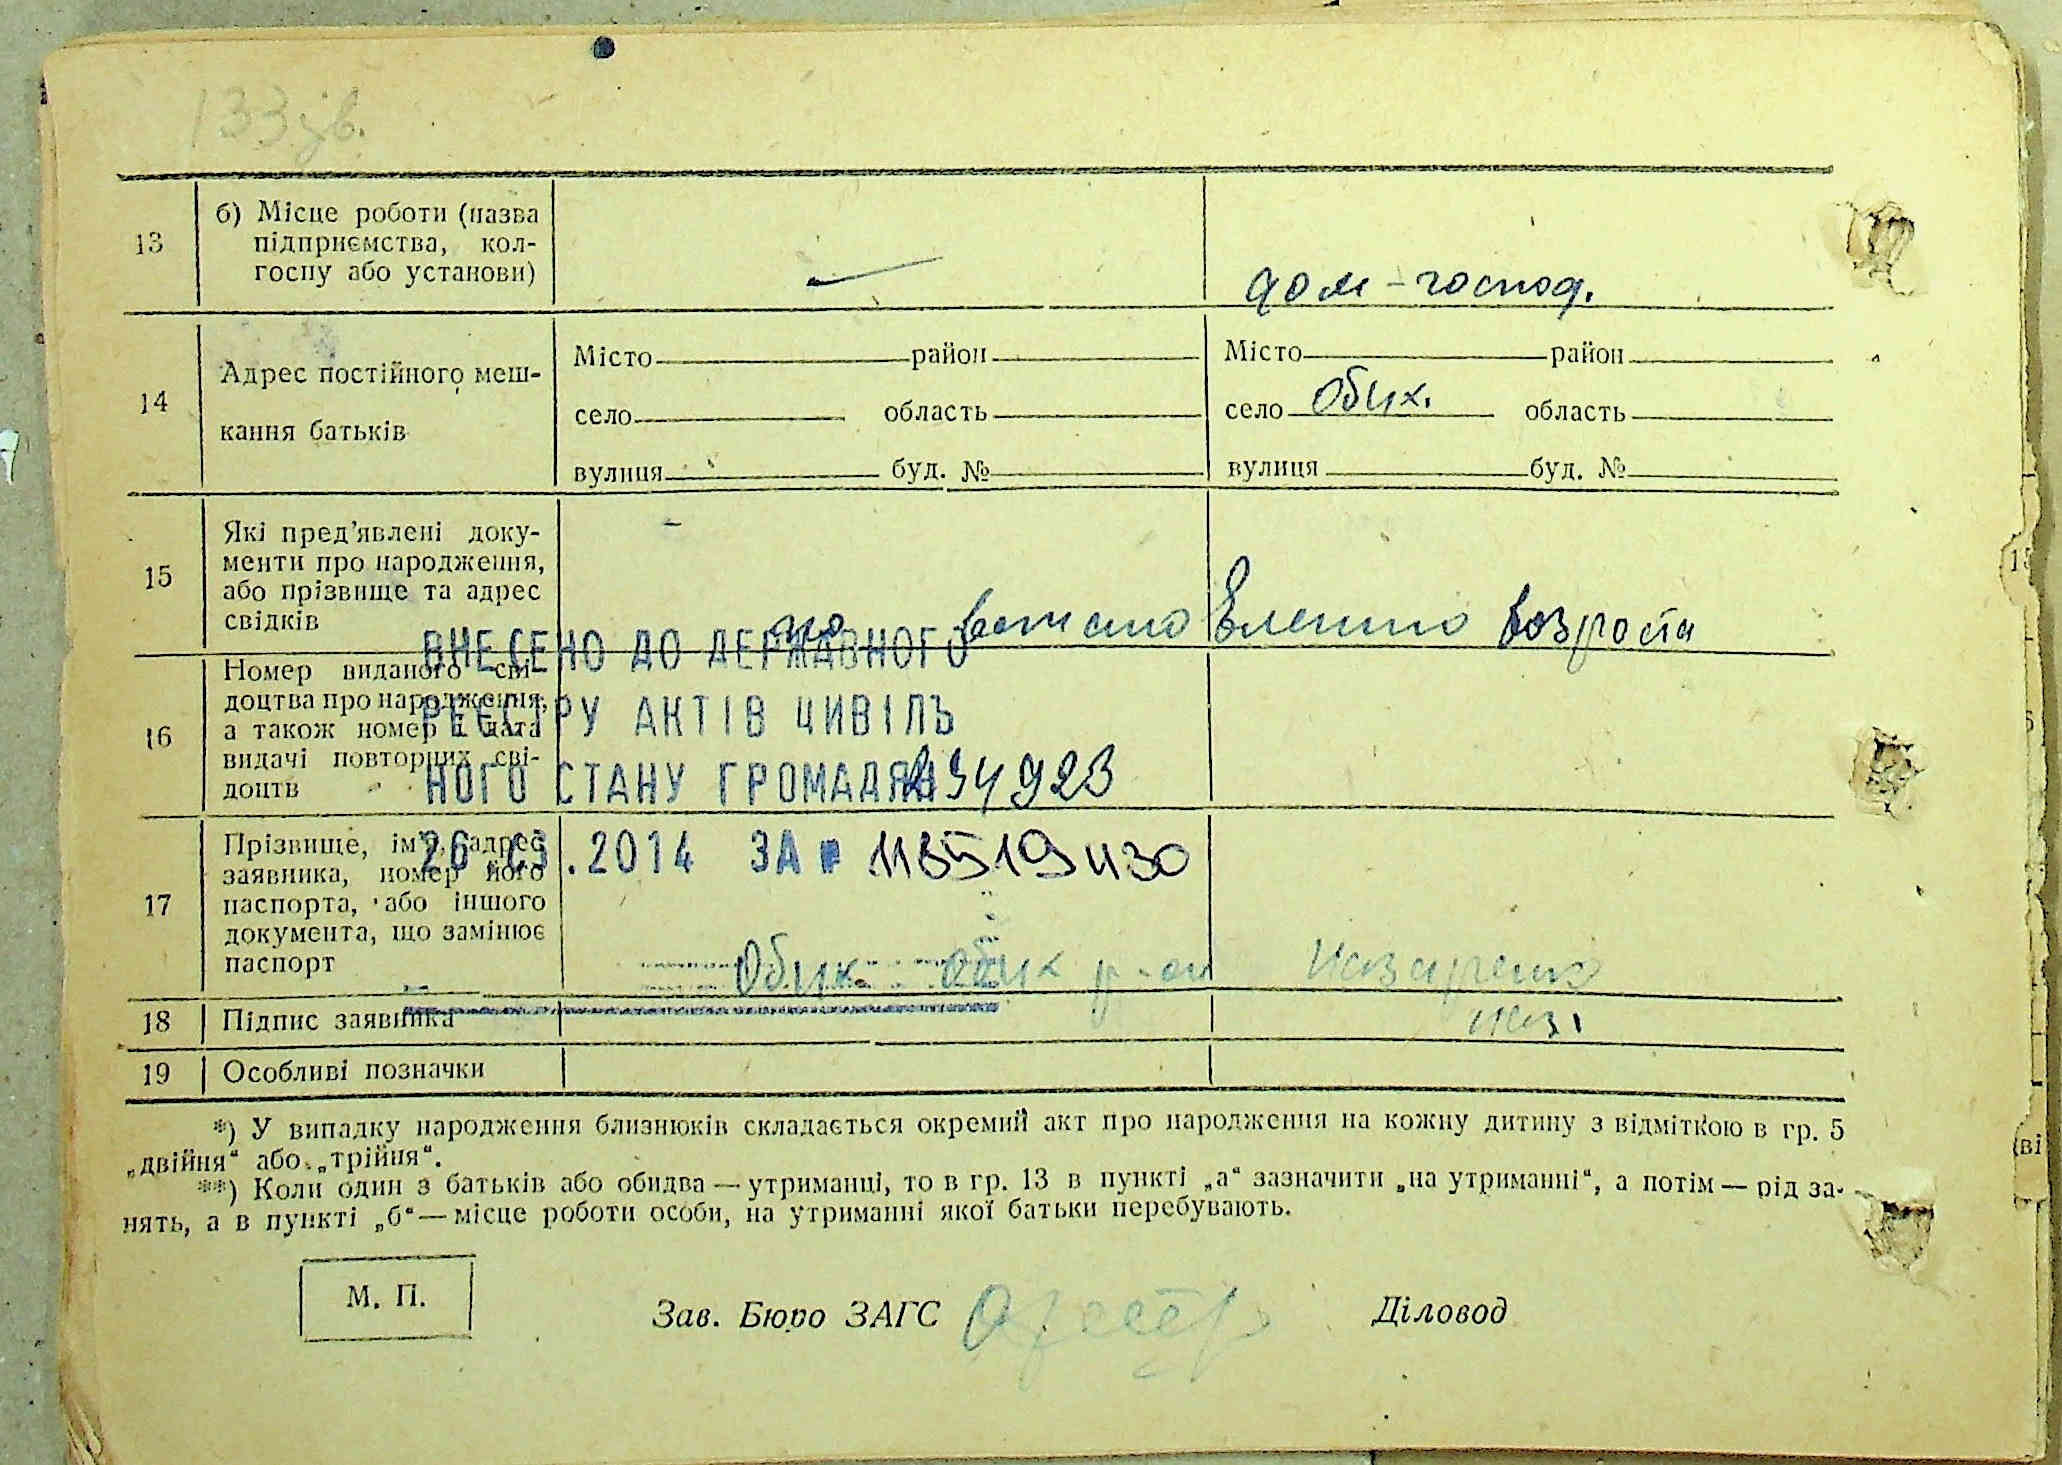 133зв.
13 б) Місце роботи (назва
підприємства, кол-
госпу або установи)
дом-господ.
14 Адрес постійного меш-
кання батьків
Місто район Місто район
село область село Обих. область
вулиця буд. № вулиця буд. №
15 Які пред’явлені доку-
менти про народження,
або прізвище та адрес
свідків
возроста
ВНЕСЕНО ДО ДЕРЖАВНОГО
РЕЄСТРУ АКТІВ ЦИВІЛЬ
НОГО СТАНУ ГРОМАДЯН
26.03.2014 ЗА № 113519430
16 Номер виданого сві-
доцтва про народження,
а також номер і дата
видачі повторних сві-
доцтв
234923
17 Прізвище, ім’я, адрес
заявника, номер його
паспорта, або іншого
документа, що замінює
паспорт
Обих. Обих р-он Назаренко
18 Підпис заявника
Наз.
19 Особливі позначки
*) У випадку народження близнюків складається окремий акт про народження на кожну дитину з відміткою в гр. 5
„двійня“ або „трійня“.
**) Коли один з батьків або обидва — утриманці, то в гр. 13 в пункті „а“ зазначити „на утриманні“, а потім — рід за-
нять, а в пункті „б“ — місце роботи особи, на утриманні якої батьки перебувають.
М. П.
Зав. Бюро ЗАГС Діловод